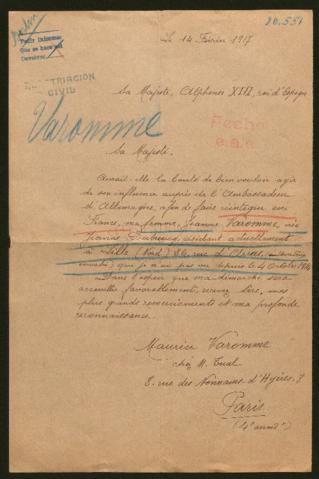 20.551
Pedir Informe
Que se hace
Le 14 Février 1917
REPATRIACION
CIVIL
Sa Majesté, Alphonse XIII, roi d'Espagne
Varomme
Fecho
Sa Majesté.
Aurait-Elle la bonté de bien vouloir agir
de son influence auprès de l'Ambassadeur
d'Allemagne, afin de faire réintégrer en
France, ma femme, Jeanne Varomme, née
résidant actuellement
à Lille (Nord) rue
que je n'ai pas vu depuis le 4 Octobre 1914
Dans l'espoir que ma démarche sera
accueillie favorablement, recevez Sire, mes
plus grands remerciements et ma profonde
reconnaissance.
Maurice Varomme
chez M. Tual
8. rue des Nonnains d'Hyères. 8
Paris
(4e arrondt)